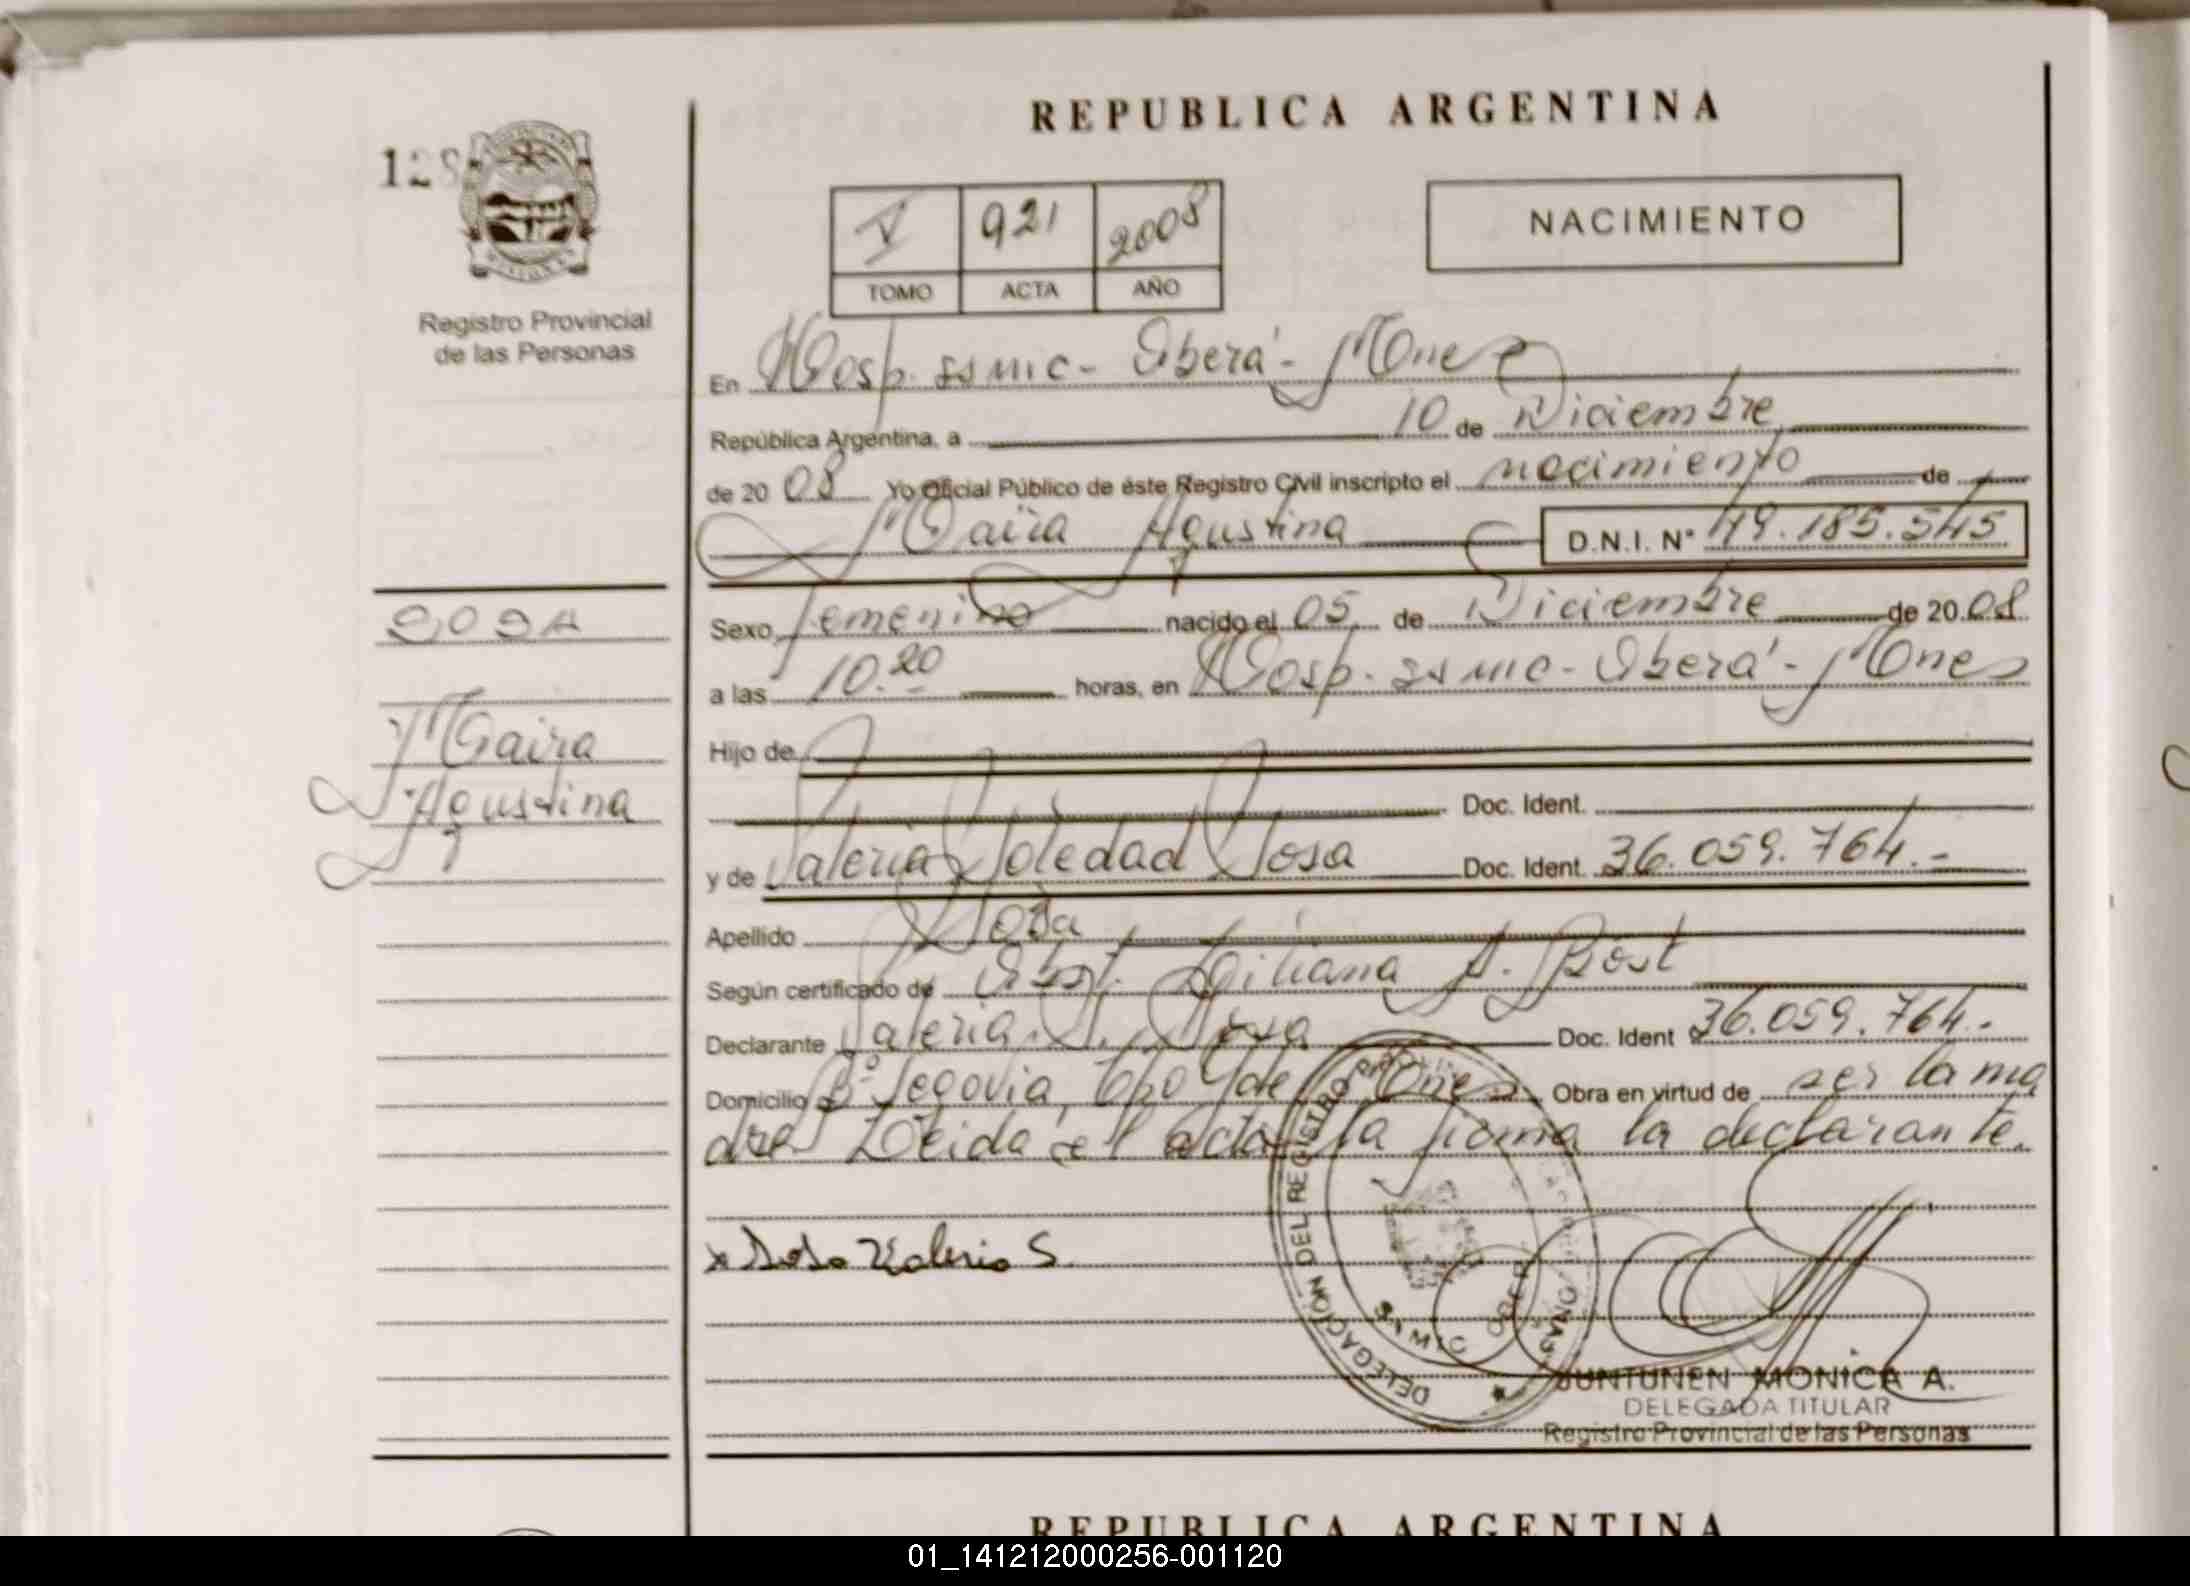 REPUBLICA ARGENTINA
128
V 921 2008
TOMO ACTA AÑO
NACIMIENTO
Registro Provincial
de las Personas
En Hosp. ssmic - Oberá - Mnes
República Argentina, a 10 de Diciembre
de 20 08 Yo Oficial Público de éste Registro Civil inscripto el nacimiento de
Maira Agustina D.N.I. N° 49.185.545
SOSA
Maira
Agustina
Sexo femenino nacido el 05 de Diciembre de 20 08
a las 10.20 horas, en Hosp. ssmic - Oberá - Mnes
Hijo de
Doc. Ident.
y de Valeria Soledad Sosa Doc. Ident. 36.059.764.-
Apellido Sosa
Según certificado de Obst. Liliana A. Bost
Declarante Valeria S. Sosa Doc. Ident 36.059.764.-
Domicilio B° Segovia, Cpo Gde Mnes. Obra en virtud de ser la ma
dre Leida el acta la firma la declarante.
x Sosa Valeria S.
DELEGACION DEL REGISTRO
JUNTUNEN MONICA A.
DELEGADA TITULAR
Registro Provincial de las Personas
REPUBLICA ARGENTINA
01_141212000256-001120